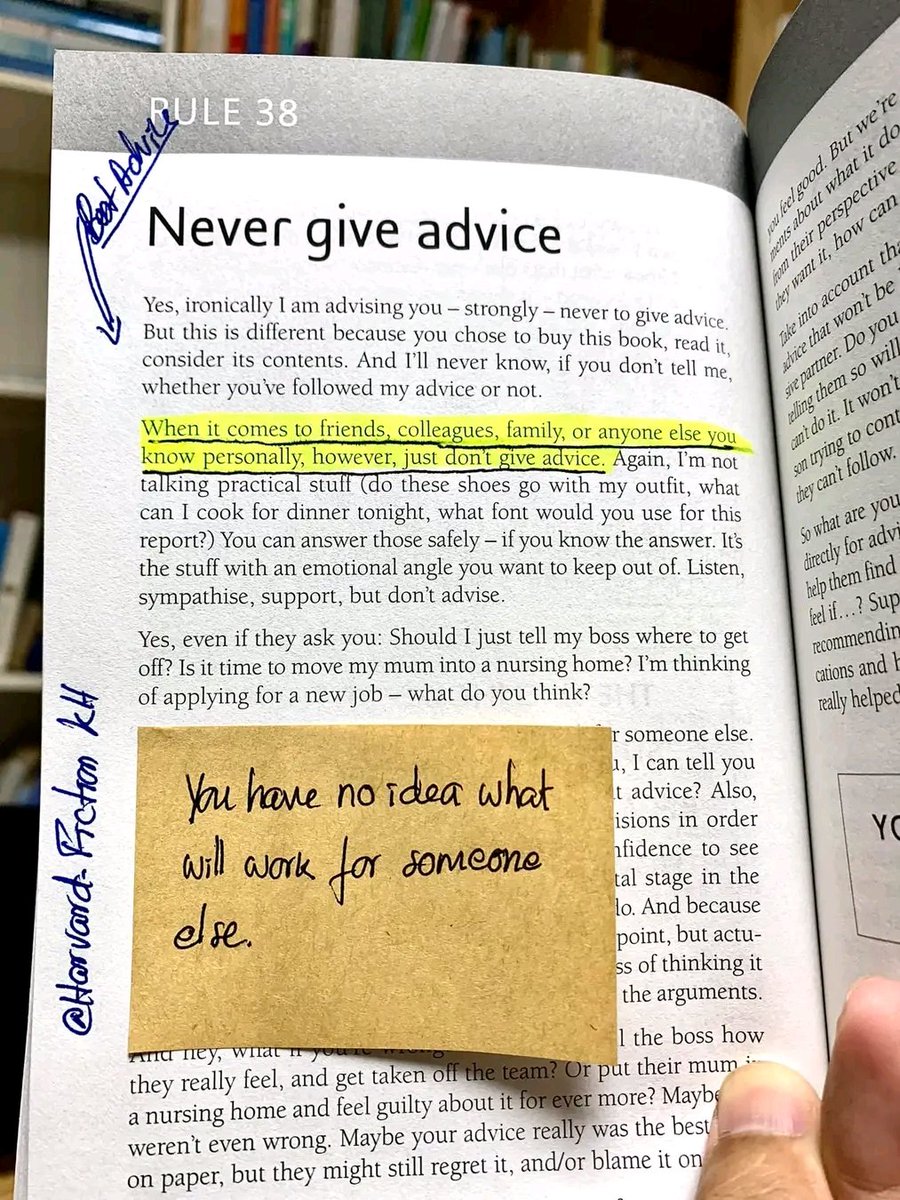 RULE 38
Best Advice
Never give advice
Yes, ironically I am advising you – strongly – never to give advice.
But this is different because you chose to buy this book, read it,
consider its contents. And I'll never know, if you don't tell me,
whether you've followed my advice or not.
When it comes to friends, colleagues, family, or anyone else you
know personally, however, just don't give advice. Again, I'm not
talking practical stuff (do these shoes go with my outfit, what
can I cook for dinner tonight, what font would you use for this
report?) You can answer those safely – if you know the answer. It's
the stuff with an emotional angle you want to keep out of. Listen,
sympathise, support, but don't advise.
Yes, even if they ask you: Should I just tell my boss where to get
off? Is it time to move my mum into a nursing home? I'm thinking
of applying for a new job – what do you think?
for someone else.
I can tell you
advice? Also,
isions in order
nfidence to see
tal stage in the
do. And because
point, but actu-
ss of thinking it
the arguments.
You have no idea what
will work for someone
else.
@Harvard-Fiction kH
And hey, what if you're wrong
l the boss how
they really feel, and get taken off the team? Or put their mum in
a nursing home and feel guilty about it for ever more? Maybe
weren't even wrong. Maybe your advice really was the best
on paper, but they might still regret it, and/or blame it on
you feel good. But we're
ments about what it do
from their perspective
they want it, how can
Take into account tha
advice that won't be
sive partner. Do you
telling them so will
can't do it. It won't
son trying to cont
they can't follow.
So what are you
directly for advi
help them find
feel if…? Sup
recommendin
cations and h
really helped
YO